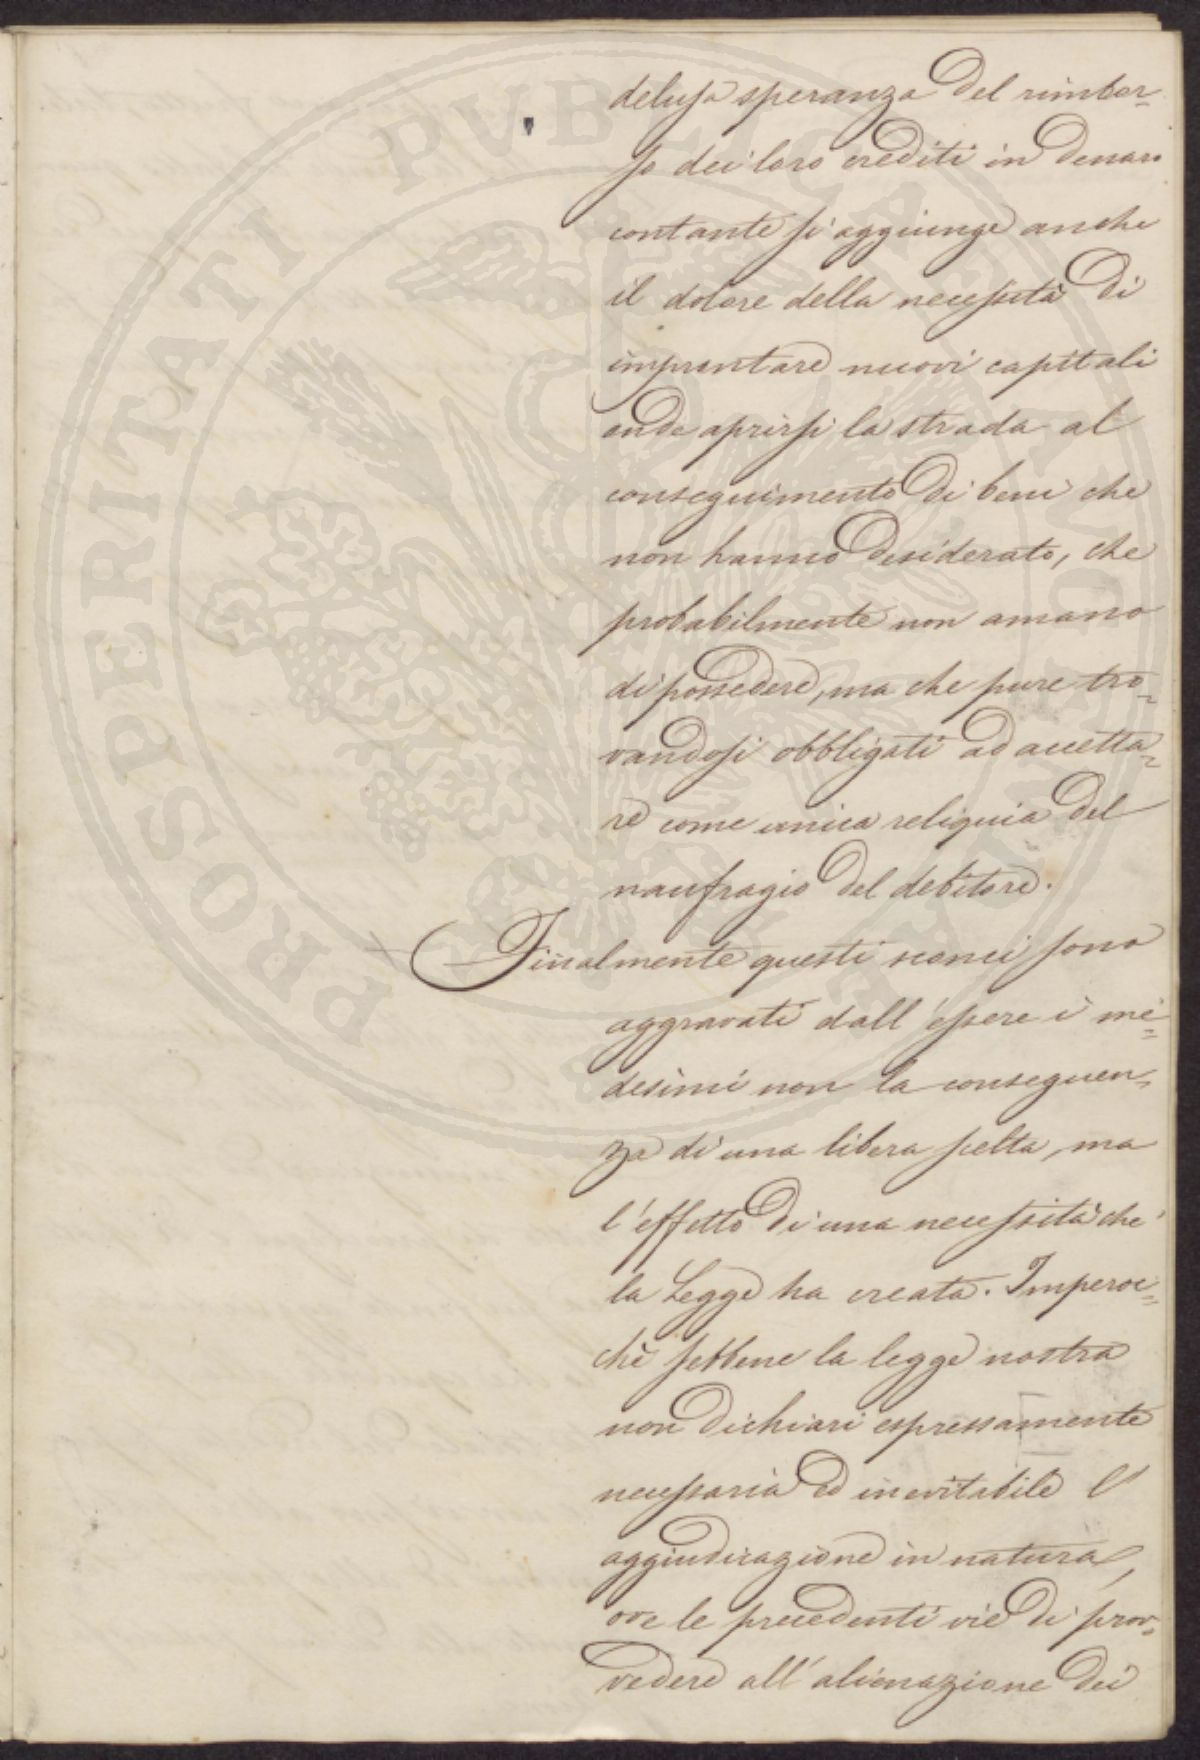 delusa speranza del rimbor-
so dei loro crediti in denaro
contante si aggiunge anche
il dolore della necessità di
improntare nuovi capitali
onde aprirsi la strada al
conseguimento di beni che
non hanno desiderato, che
probabilmente non amano
di possedere, ma che pure tro-
vandosi obbligati ad accetta-
re come unica reliquia del
naufragio del debitore.
Finalmente questi sconci sono
aggravati dall'essere i me-
desimi non la conseguen-
za di una libera scelta, ma
l'effetto di una necessità che
la Legge ha creata. Imperoc-
chè sebbene la legge nostra
non dichiari espressamente
necessaria ed inevitabile l'
aggiudicazione in natura,
ove le precedenti vie di prov-
vedere all'alienazione dei
PROSPERITATI PVBLICAE AVGENDAE